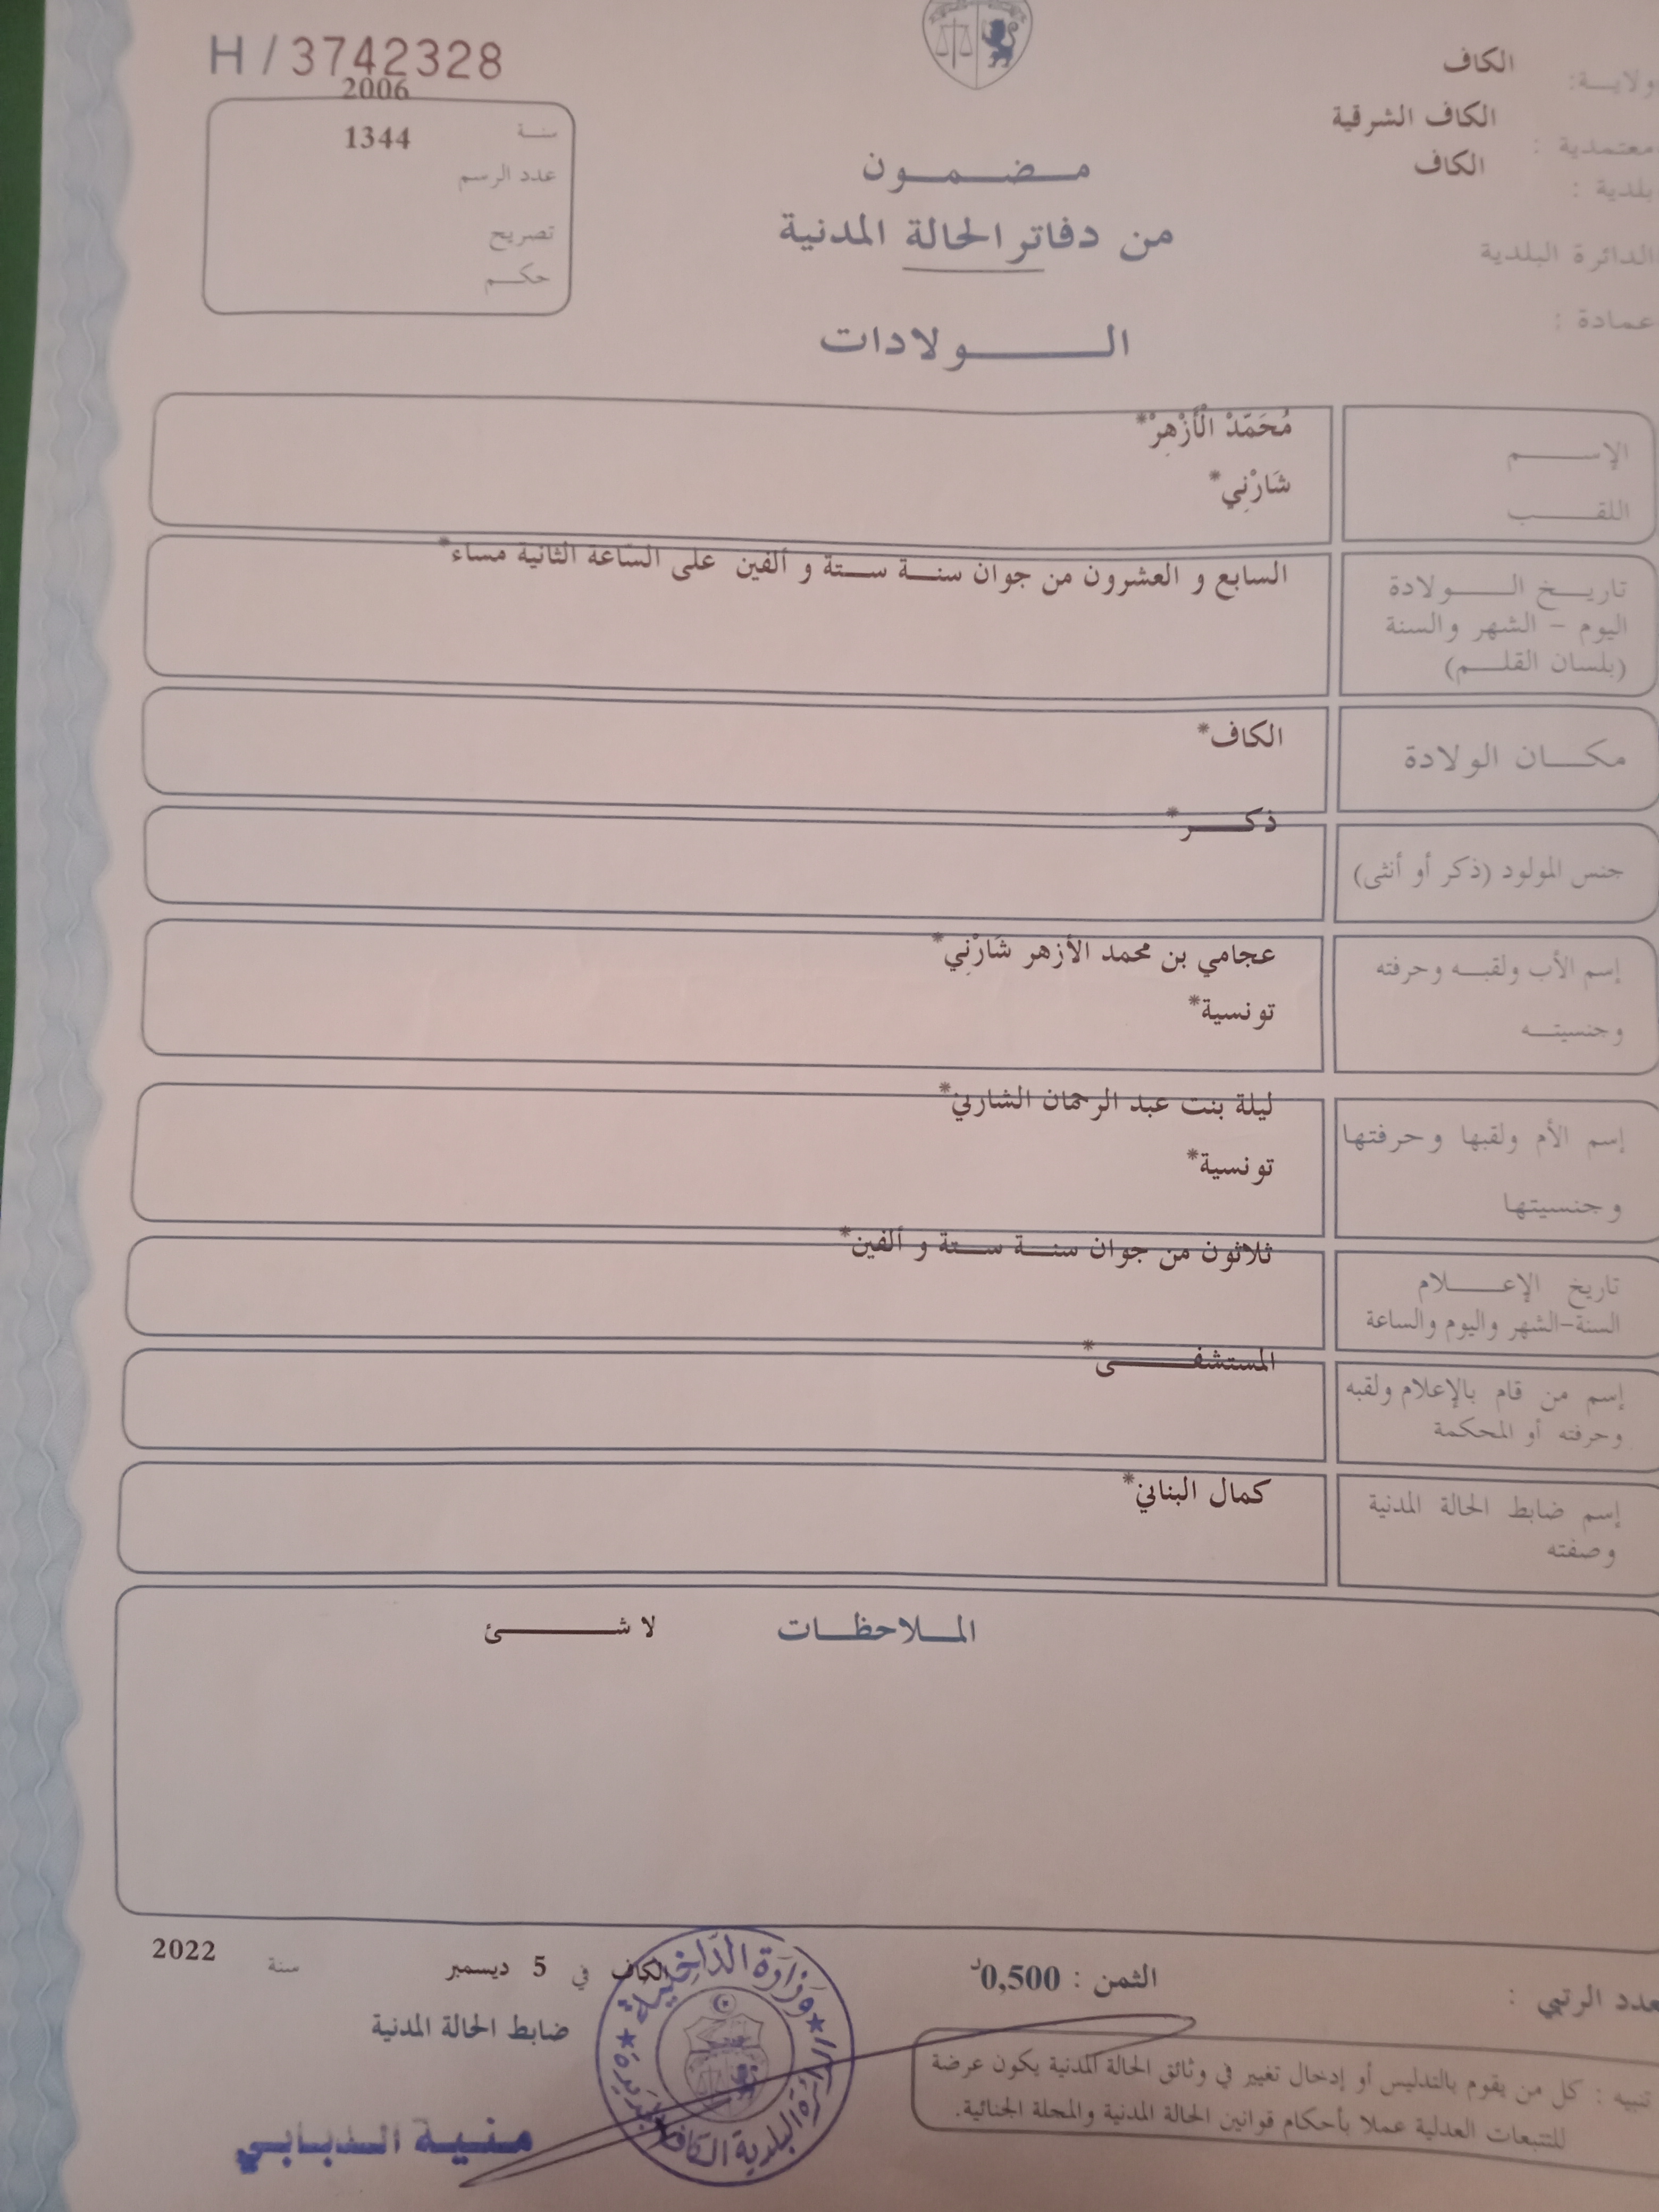 H / 3742328
2006
سنة
1344
عدد الرسم
تصريح
حكم
ولاية: الكاف
معتمدية : الكاف الشرقية
بلدية : الكاف
الدائرة البلدية
عمادة :
مضمون
من دفاتر الحالة المدنية
الولادات
الإسم
مُحَمَّدْ الْأَزْهِرْ*
اللقب
شَارْنِي*
تاريخ الولادة
اليوم - الشهر والسنة
(بلسان القلم)
السابع و العشرون من جوان سنة ستة و ألفين على الساعة الثانية مساء*
مكان الولادة
الكاف*
جنس المولود (ذكر أو أنثى)
ذكر*
إسم الأب ولقبه وحرفته
وجنسيته
عجامي بن محمد الأزهر شَارْنِي*
تونسية*
إسم الأم ولقبها وحرفتها
وجنسيتها
ليلة بنت عبد الرحمان الشارني*
تونسية*
تاريخ الإعلام
السنة-الشهر واليوم والساعة
ثلاثون من جوان سنة ستة و ألفين*
إسم من قام بالإعلام ولقبه
وحرفته أو المحكمة
المستشفى*
إسم ضابط الحالة المدنية
وصفته
كمال البناني*
الملاحظات لا شئ
عدد الرتبي :
الثمن : 0,500د
الكاف في 5 ديسمبر سنة 2022
ضابط الحالة المدنية
منية الدبابي
وزارة الداخلية
الدائرة البلدية الكاف
تنبيه : كل من يقوم بالتدليس أو إدخال تغيير في وثائق الحالة المدنية يكون عرضة
للتتبعات العدلية عملا بأحكام قوانين الحالة المدنية والمجلة الجنائية.